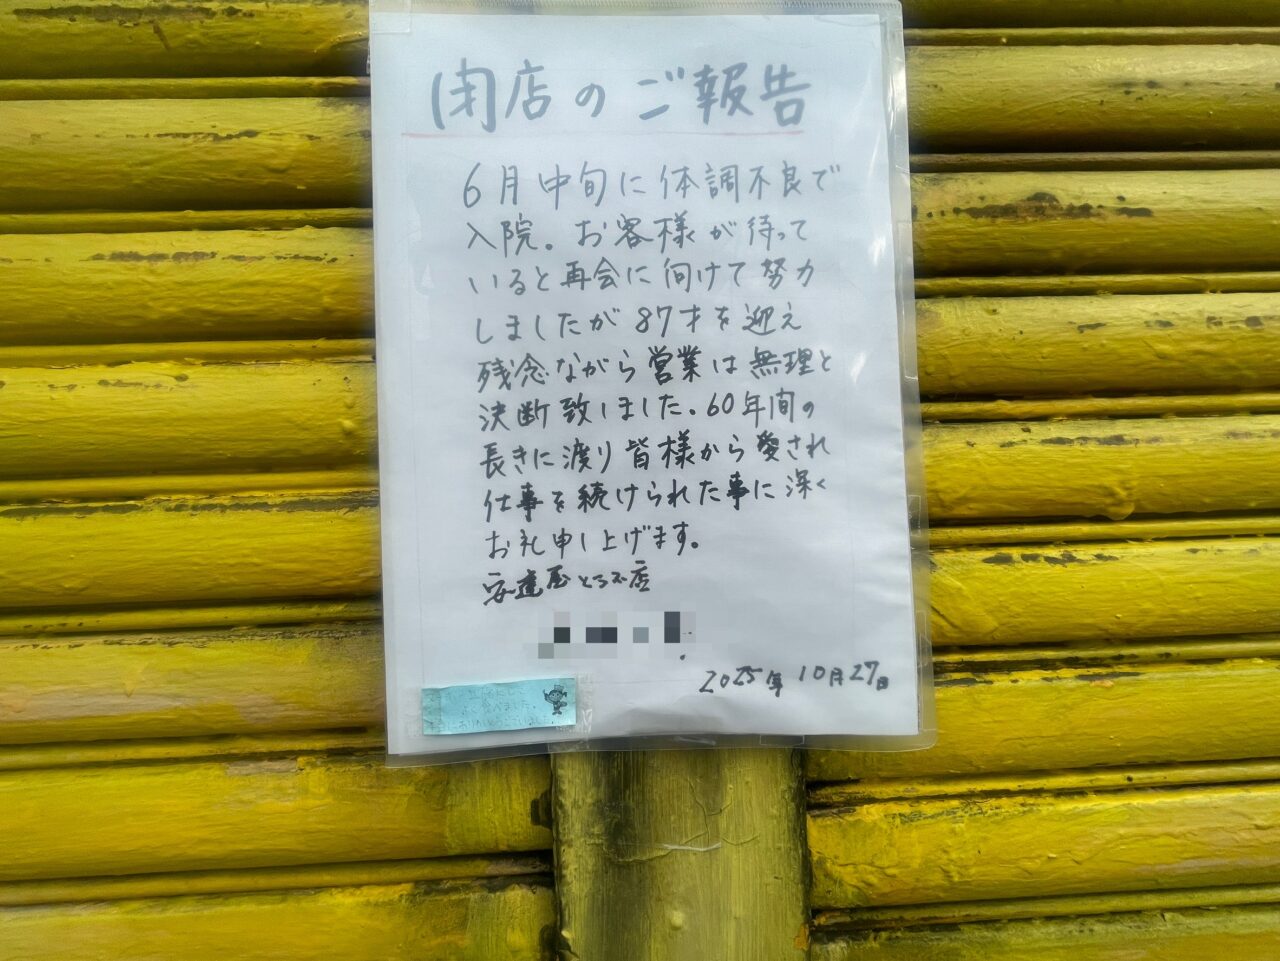 閉店のご報告
6月中旬に体調不良で
入院。お客様が待って
いると再会に向けて努力
しましたが87才を迎え
残念ながら営業は無理と
決断致しました。60年間の
長きに渡り皆様から愛され
仕事を続けられた事に深く
お礼申し上げます。
安達屋
2025年10月27日